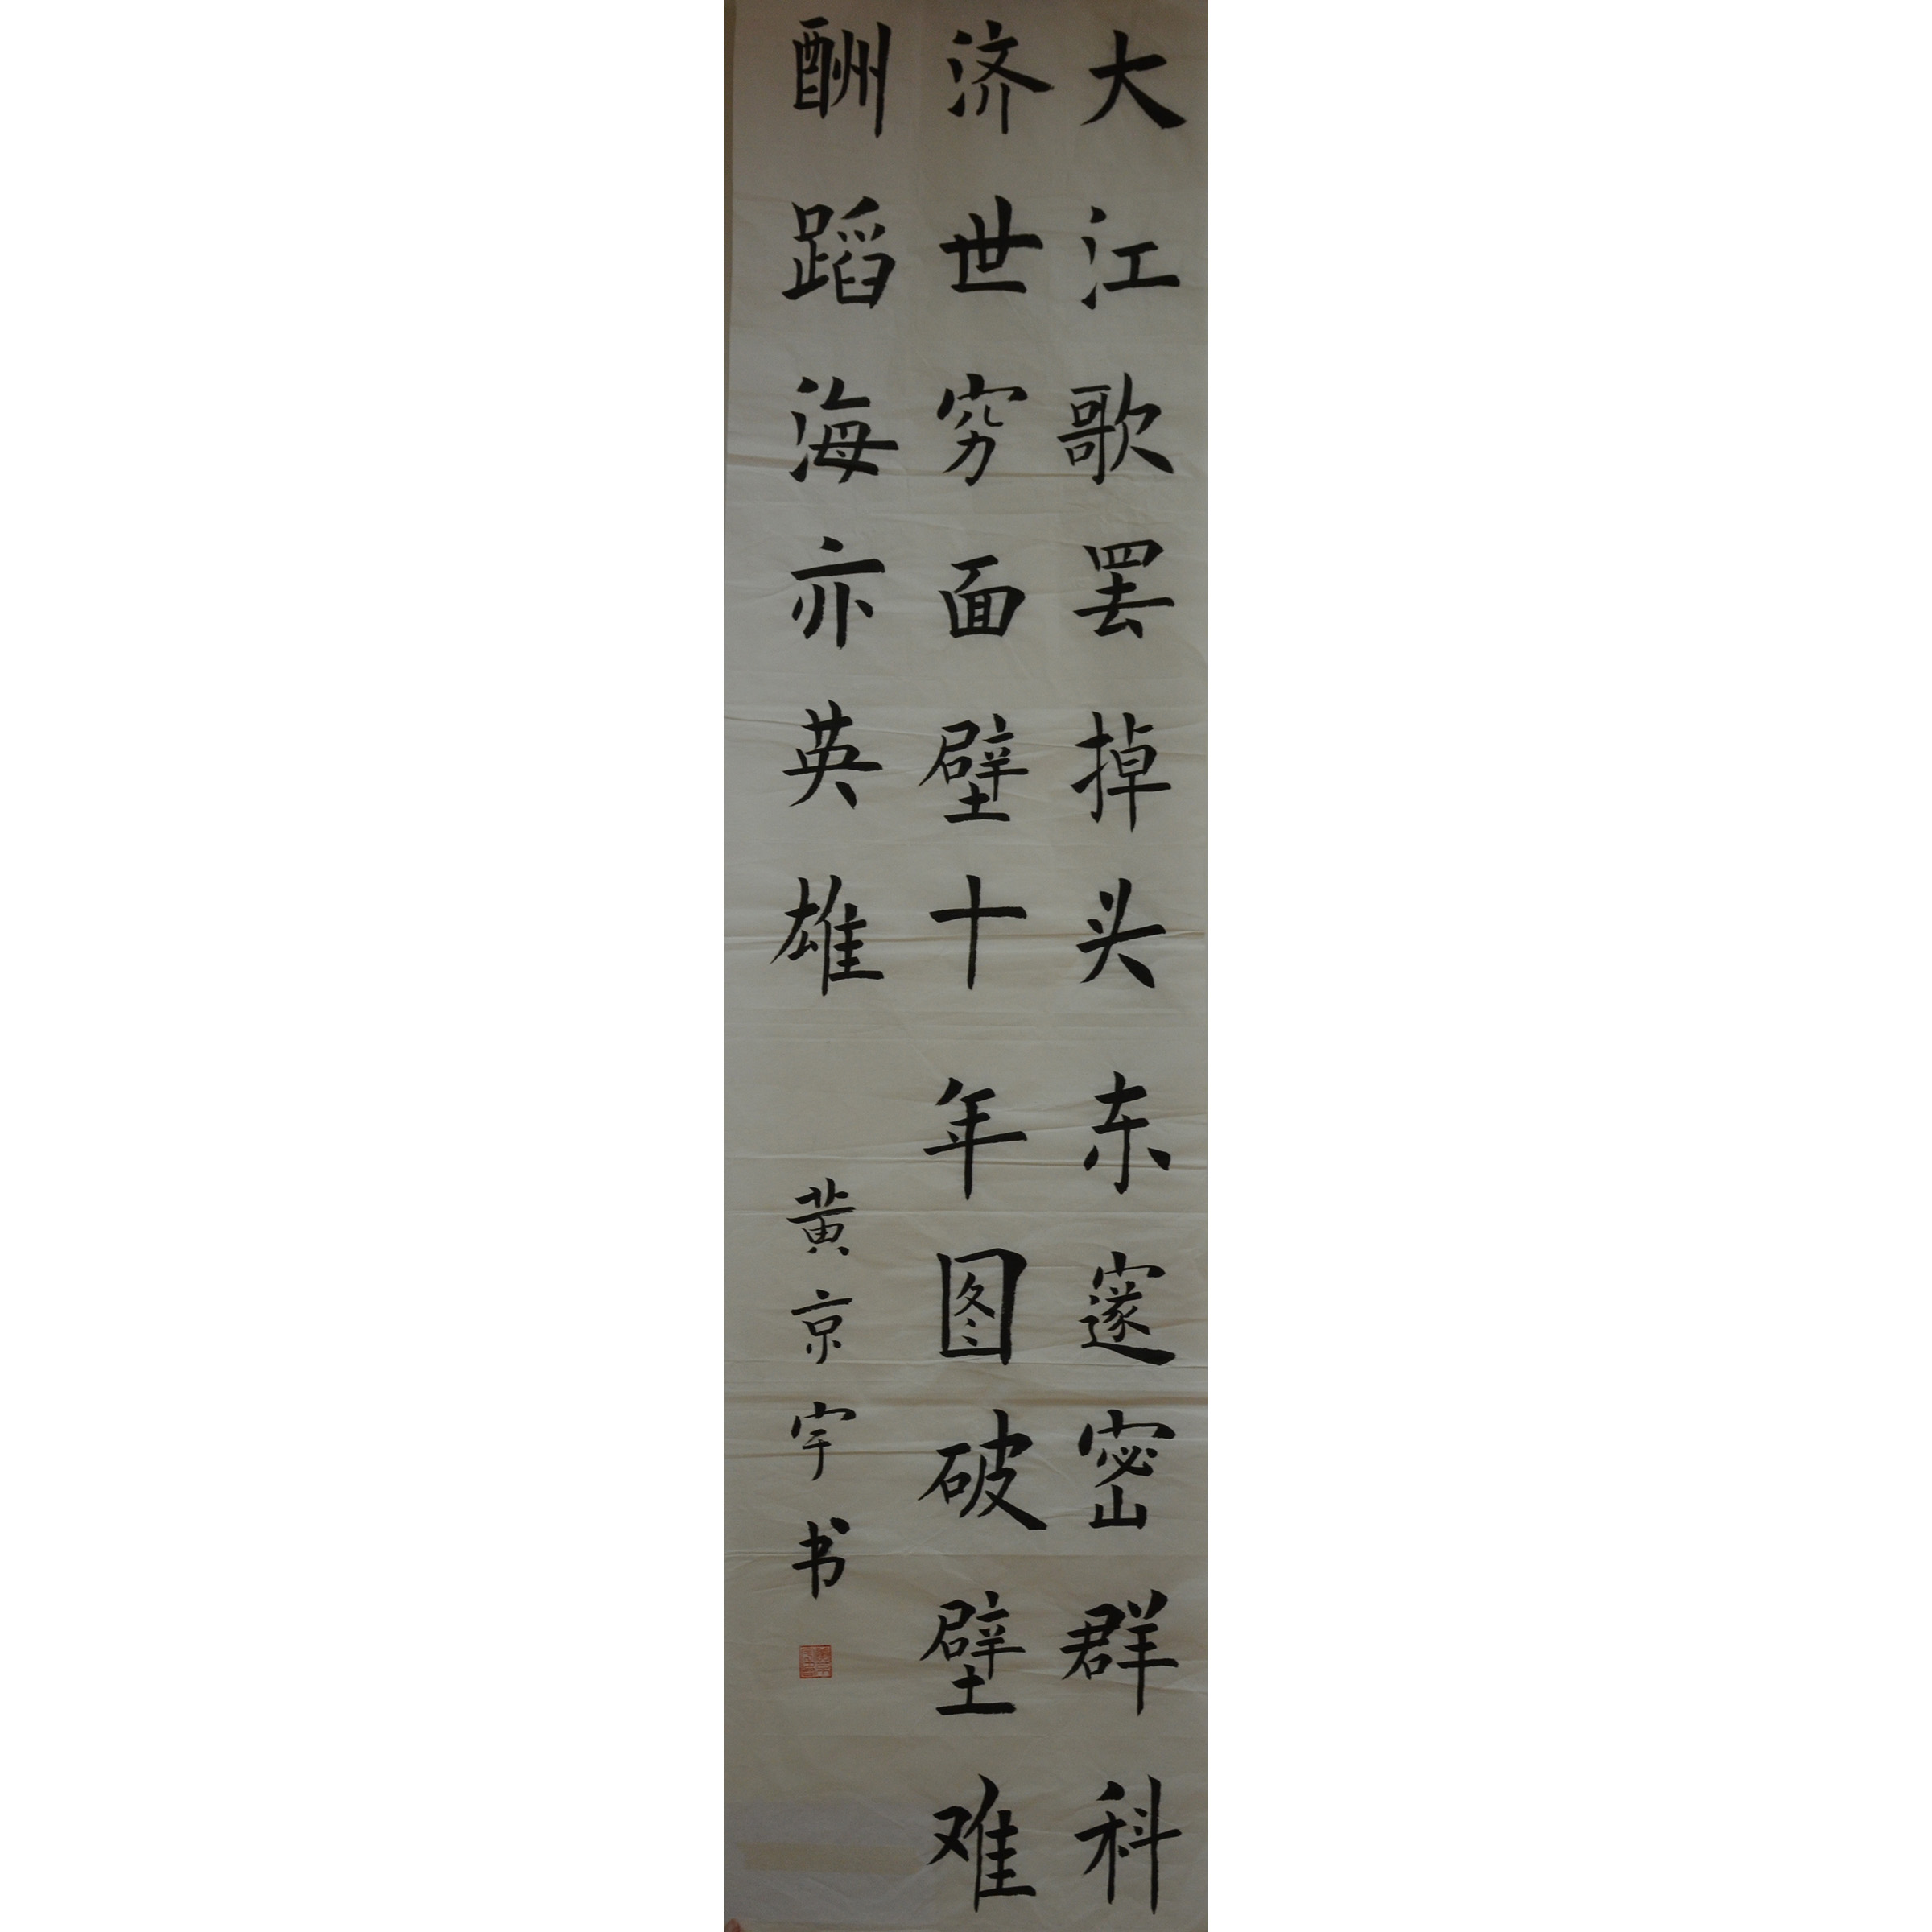 大江歌罢掉头东邃密群科
济世穷面壁十年图破壁难
酬蹈海亦英雄
黄京宇书